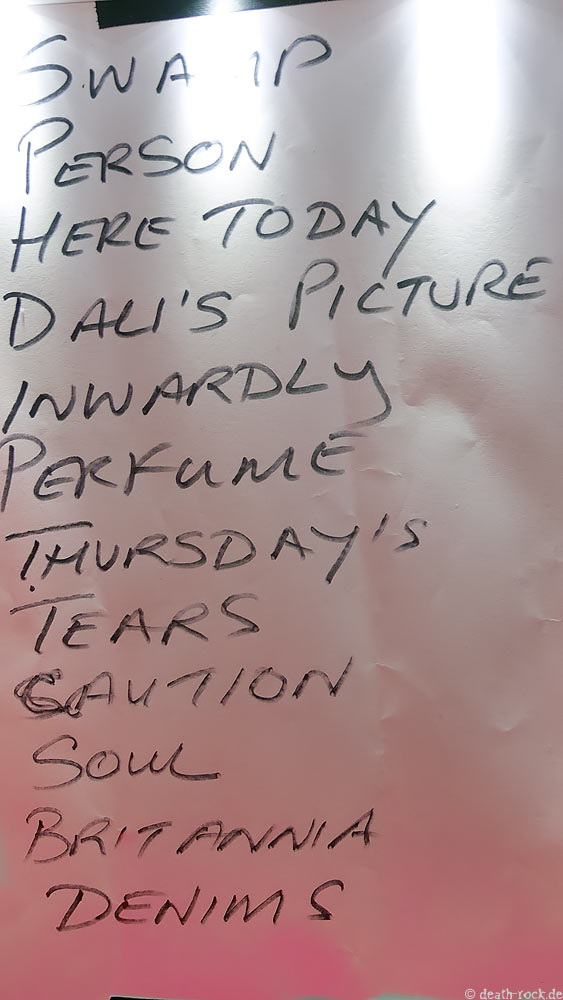 SWAMP
PERSON
HERE TODAY
DALI'S PICTURE
INWARDLY
PERFUME
THURSDAY'S
TEARS
CAUTION
SOUL
BRITANNIA
DENIMS
© death-rock.de